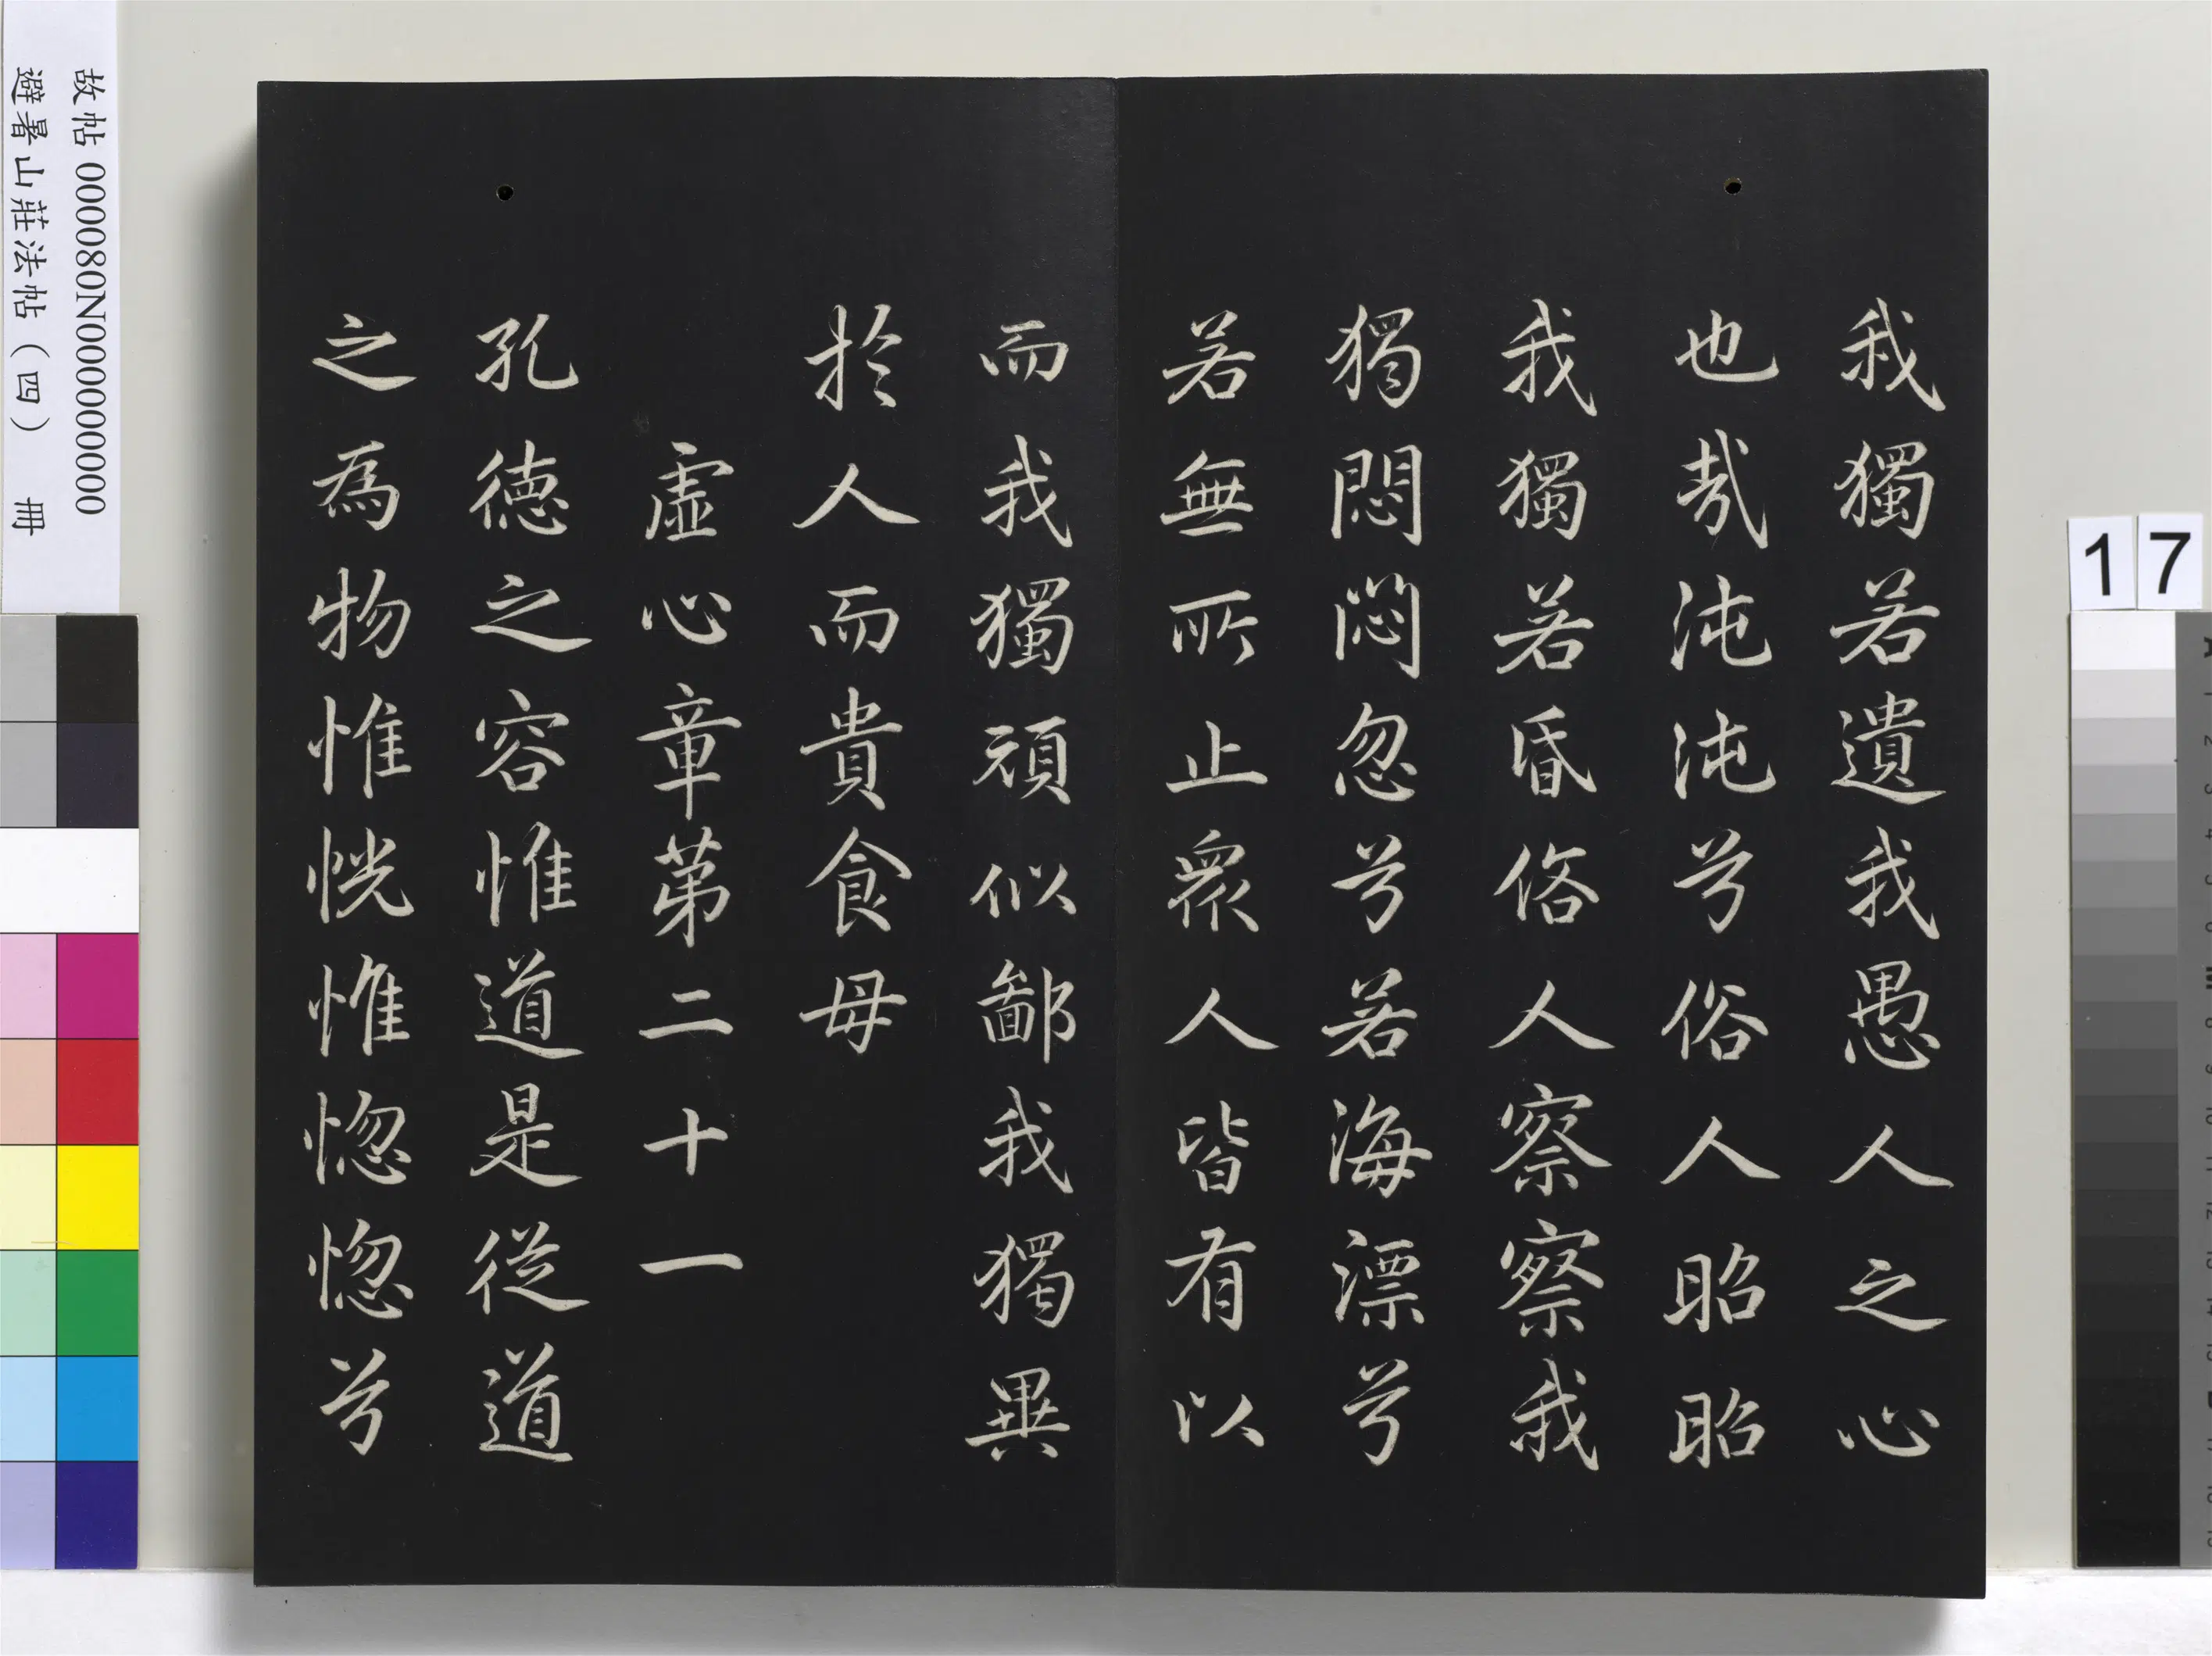 我獨若遺我愚人之心
也哉沌沌兮俗人昭昭
我獨若昏俗人察察我
獨悶悶忽兮若海漂兮
若無所止眾人皆有以
而我獨頑似鄙我獨異
於人而貴食母
虛心章第二十一
孔德之容惟道是從道
之為物惟恍惟惚惚兮
故帖 000080N000000000
避暑山莊法帖（四） 冊
17